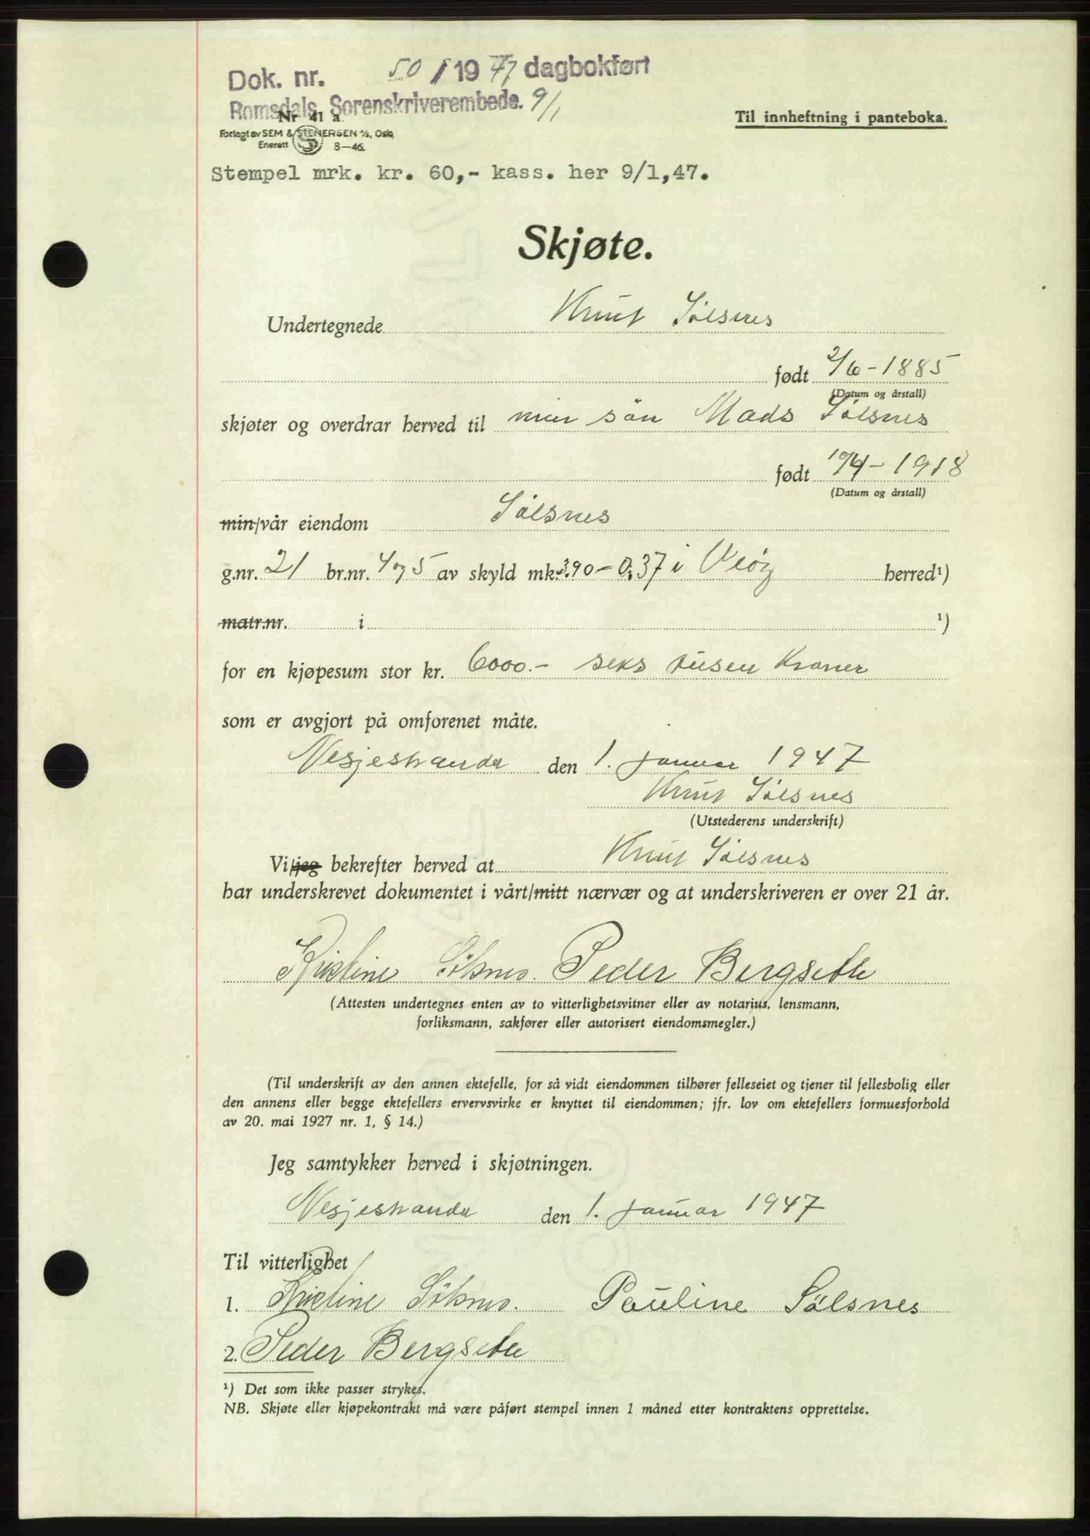 Dok. nr. 50 / 1947 dagbokført
Romsdals Sorenskriverembede. 9/1
Nr 41 a.
Til innheftning i panteboka.
Forlegt av SEM & STENERSEN A/S, Oslo
Enerett 8—46.
Stempel mrk. kr. 60,- kass. her 9/1,47.
Skjøte.
Undertegnede Knut Sølsnes
født 2/6-1885
(Datum og årstall)
skjøter og overdrar herved til min sön Mads Sølsnes
født 19/4-1918
(Datum og årstall)
min/vår eiendom Sølsnes
g.nr. 21 br.nr. 4 og 5 av skyld mk. 3.90 - 0.37 i Veöy herred¹)
matr.nr. i ¹)
for en kjøpesum stor kr. 6000.- seks tusen Kroner
som er avgjort på omforenet måte.
Nesjestranda den 1. januar 1947
Knut Sølsnes
(Utstederens underskrift)
Vi/jeg bekrefter herved at Knut Sølsnes
har underskrevet dokumentet i vårt/mitt nærvær og at underskriveren er over 21 år.
Kristine Sölsnes. Peder Bergsethe
(Attesten undertegnes enten av to vitterlighetsvitner eller av notarius, lensmann,
forliksmann, sakfører eller autorisert eiendomsmegler.)
(Til underskrift av den annen ektefelle, for så vidt eiendommen tilhører felleseiet og tjener til fellesbolig eller
den annens eller begge ektefellers ervervsvirke er knyttet til eiendommen; jfr. lov om ektefellers formuesforhold
av 20. mai 1927 nr. 1, § 14.)
Jeg samtykker herved i skjøtningen.
Nesjestranda den 1. januar 1947
Til vitterlighet
1. Kristine Sölsnes. Pauline Sølsnes
2. Peder Bergsethe
¹) Det som ikke passer strykes.
NB. Skjøte eller kjøpekontrakt må være påført stempel innen 1 måned etter kontraktens opprettelse.